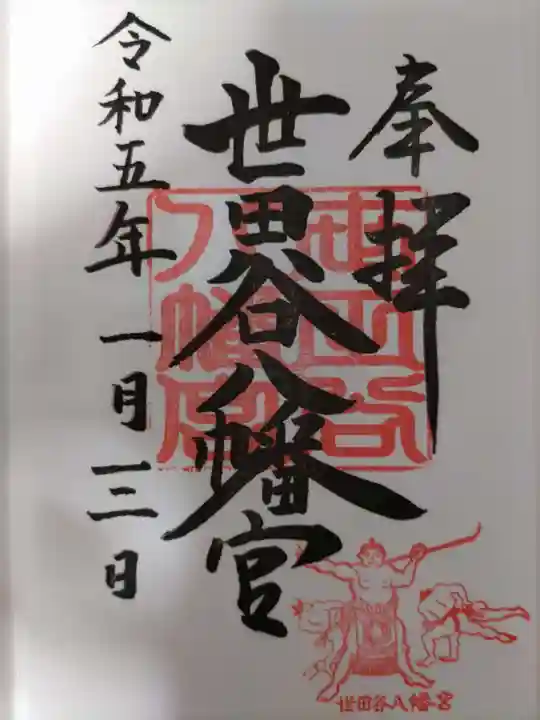 奉拝
世田谷八幡宮
世田谷八幡宮
令和五年一月三日
世田谷八幡宮